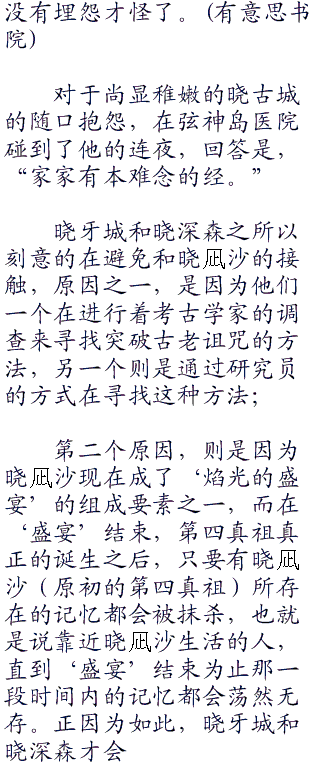 没有埋怨才怪了。(有意思书
院)
对于尚显稚嫩的晓古城
的随口抱怨，在弦神岛医院
碰到了他的连夜，回答是，
“家家有本难念的经。”
晓牙城和晓深森之所以
刻意的在避免和晓凪沙的接
触，原因之一，是因为他们
一个在进行着考古学家的调
查来寻找突破古老诅咒的方
法，另一个则是通过研究员
的方式在寻找这种方法；
第二个原因，则是因为
晓凪沙现在成了‘焰光的盛
宴’的组成要素之一，而在
‘盛宴’结束，第四真祖真
正的诞生之后，只要有晓凪
沙（原初的第四真祖）所存
在的记忆都会被抹杀，也就
是说靠近晓凪沙生活的人，
直到‘盛宴’结束为止那一
段时间内的记忆都会荡然无
存。正因为如此，晓牙城和
晓深森才会